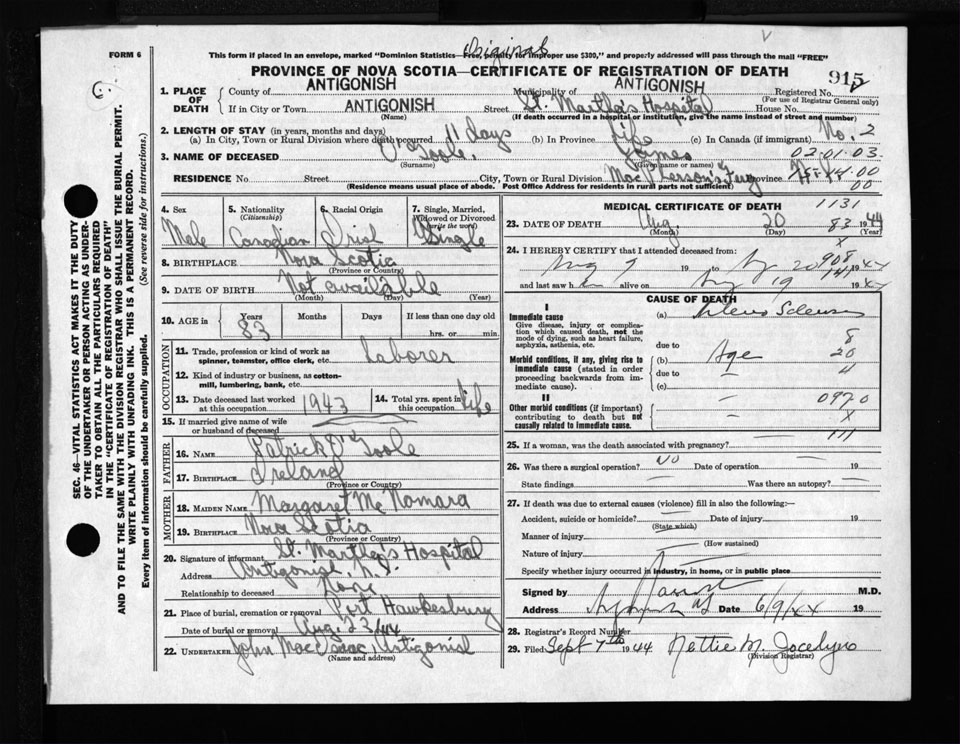 Original
FORM 6
This form if placed in an envelope, marked "Dominion Statistics—Free, penalty for improper use $300," and properly addressed will pass through the mail "FREE"
PROVINCE OF NOVA SCOTIA—CERTIFICATE OF REGISTRATION OF DEATH
915
1. PLACE OF DEATH
County of ANTIGONISH Municipality of ANTIGONISH Registered No.
(For use of Registrar General only)
If in City or Town ANTIGONISH Street St. Martha's Hospital House No.
(Name) (If death occurred in a hospital or institution, give the name instead of street and number)
2. LENGTH OF STAY (in years, months and days)
(a) In City, Town or Rural Division where death occurred 11 days (b) In Province Life (c) In Canada (if immigrant) No. 2
3. NAME OF DECEASED O'Toole, James 02.01.03.
(Surname) (Given name or names)
RESIDENCE No. Street City, Town or Rural Division MacPherson's Ferry Province N.S.
00
(Residence means usual place of abode. Post Office Address for residents in rural parts not sufficient)
4. Sex Male
5. Nationality (Citizenship) Canadian
6. Racial Origin Irish
7. Single, Married, Widowed or Divorced (write the word) Single
8. BIRTHPLACE Nova Scotia
(Province or Country)
9. DATE OF BIRTH Not available
(Month) (Day) (Year)
10. AGE in Years Months Days If less than one day old
83 hrs. or min.
OCCUPATION
11. Trade, profession or kind of work as spinner, teamster, office clerk, etc. Laborer
12. Kind of industry or business, as cotton-mill, lumbering, bank, etc.
13. Date deceased last worked at this occupation 1943
14. Total yrs. spent in this occupation Life
15. If married give name of wife or husband of deceased
FATHER
16. NAME Patrick O'Toole
17. BIRTHPLACE Ireland
MOTHER
18. MAIDEN NAME Margaret McNamara
19. BIRTHPLACE Nova Scotia
20. Signature of informant St. Martha's Hospital
Address Antigonish, N.S.
Relationship to deceased None
21. Place of burial, cremation or removal Port Hawkesbury
Date of burial or removal Aug. 23/44
22. UNDERTAKER John MacIsaac, Antigonish
(Name and address)
MEDICAL CERTIFICATE OF DEATH
1131
23. DATE OF DEATH Aug 20 83 1944
(Month) (Day) (Year)
x
24. I HEREBY CERTIFY that I attended deceased from:
Aug 9 19 to Aug 20 908 19 44
and last saw h alive on Aug 19 19 44
CAUSE OF DEATH
I
Immediate cause (a)
Give disease, injury or complication which caused death, not the mode of dying, such as heart failure, asphyxia, asthenia, etc.
due to 8
Morbid conditions, if any, giving rise to immediate cause (stated in order proceeding backwards from immediate cause).
(b) Age 20
due to 4
(c)
II
Other morbid conditions (if important) contributing to death but not causally related to immediate cause.
0970
x
111
25. If a woman, was the death associated with pregnancy?
26. Was there a surgical operation? NO Date of operation 19
State findings Was there an autopsy?
27. If death was due to external causes (violence) fill in also the following:—
Accident, suicide or homicide? Date of injury 19
(State which)
Manner of injury
(How sustained)
Nature of injury
Specify whether injury occurred in industry, in home, or in public place
Signed by M.D.
Address Date 6/9/44 19
28. Registrar's Record Number
29. Filed Sept 7th 1944 Nettie M. Jocelyn
(Division Registrar)
SEC. 46—VITAL STATISTICS ACT MAKES IT THE DUTY
OF THE UNDERTAKER OR PERSON ACTING AS UNDERTAKER TO OBTAIN ALL THE PARTICULARS REQUIRED
IN THE "CERTIFICATE OF REGISTRATION OF DEATH"
AND TO FILE THE SAME WITH THE DIVISION REGISTRAR WHO SHALL ISSUE THE BURIAL PERMIT.
WRITE PLAINLY WITH UNFADING INK. THIS IS A PERMANENT RECORD.
Every item of information should be carefully supplied. (See reverse side for instructions.)